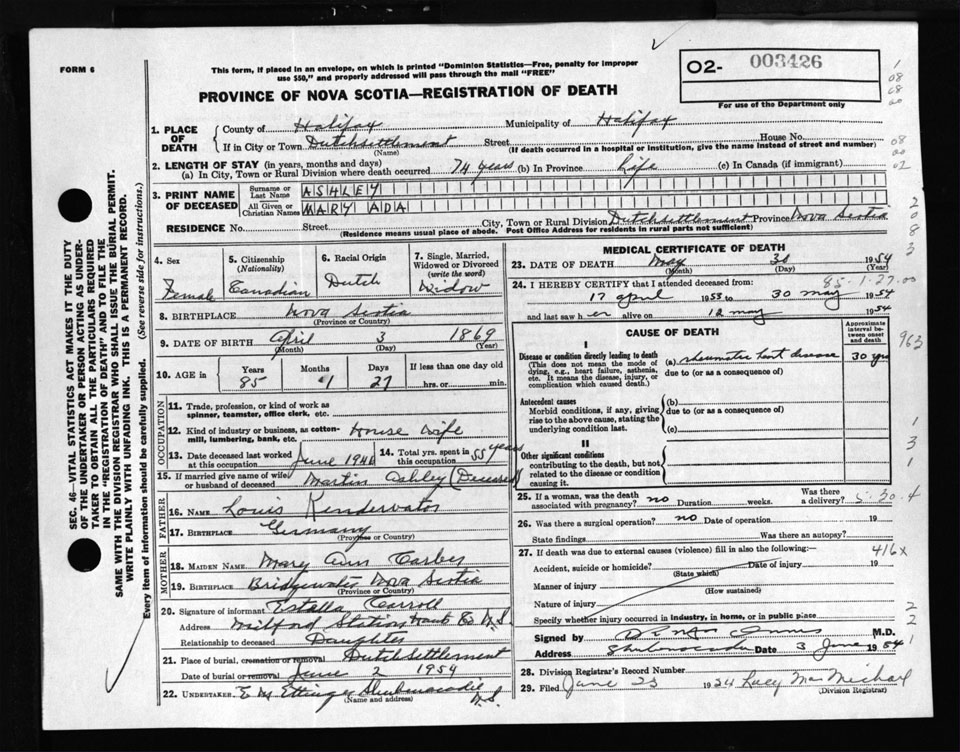 FORM 6
This form, if placed in an envelope, on which is printed "Dominion Statistics—Free, penalty for improper
use $50," and properly addressed will pass through the mail "FREE"
O2- 003426
For use of the Department only
PROVINCE OF NOVA SCOTIA—REGISTRATION OF DEATH
1. PLACE OF DEATH
County of Halifax Municipality of Halifax
If in City or Town Dutchsettlement Street House No.
(Name) (If death occurred in a hospital or institution, give the name instead of street and number)
2. LENGTH OF STAY (in years, months and days)
(a) In City, Town or Rural Division where death occurred 74 years (b) In Province Life (c) In Canada (if immigrant)
3. PRINT NAME OF DECEASED
Surname or Last Name ASHLEY
All Given or Christian Names MARY ADA
RESIDENCE No. Street City, Town or Rural Division Dutchsettlement Province Nova Scotia
(Residence means usual place of abode. Post Office Address for residents in rural parts not sufficient)
4. Sex Female
5. Citizenship (Nationality) Canadian
6. Racial Origin Dutch
7. Single, Married, Widowed or Divorced (write the word) Widow
8. BIRTHPLACE Nova Scotia
(Province or Country)
9. DATE OF BIRTH April 3 1869
(Month) (Day) (Year)
10. AGE in Years 85 Months 1 Days 27 If less than one day old
hrs. or min.
OCCUPATION
11. Trade, profession, or kind of work as spinner, teamster, office clerk, etc.
12. Kind of industry or business, as cotton-mill, lumbering, bank, etc. House wife
13. Date deceased last worked at this occupation June 194
14. Total yrs. spent in this occupation 55 years
15. If married give name of wife or husband of deceased Martin Ashley (Deceased)
FATHER
16. Name Louis Kindervator
17. BIRTHPLACE Germany
(Province or Country)
MOTHER
18. MAIDEN NAME Mary Ann
19. BIRTHPLACE Bridgewater Nova Scotia
(Province or Country)
20. Signature of informant Estella Carroll
Address Milford Station Hants Co N.S.
Relationship to deceased Daughter
21. Place of burial, cremation or removal Dutch Settlement
Date of burial or removal June 2 1954
22. UNDERTAKER E M Ettinger Shubenacadie N.S.
(Name and address)
MEDICAL CERTIFICATE OF DEATH
23. DATE OF DEATH May 30 1954
(Month) (Day) (Year)
24. I HEREBY CERTIFY that I attended deceased from: 85-1-27-00
17 April 1953 to 30 May 1954
and last saw her alive on 12 May 1954
CAUSE OF DEATH
Approximate interval between onset and death
I
Disease or condition directly leading to death
(This does not mean the mode of dying, e.g., heart failure, asthenia, etc. It means the disease, injury, or complication which caused death.)
(a) rheumatic heart disease 30 yrs
due to (or as a consequence of)
Antecedent causes
Morbid conditions, if any, giving rise to the above cause, stating the underlying condition last.
(b)
due to (or as a consequence of)
(c)
II
Other significant conditions
contributing to the death, but not related to the disease or condition causing it.
25. If a woman, was the death associated with pregnancy? no Duration weeks. Was there a delivery? 5-30-4
26. Was there a surgical operation? no Date of operation 19
State findings Was there an autopsy?
27. If death was due to external causes (violence) fill in also the following:— 416x
Accident, suicide or homicide? Date of injury 19
(State which)
Manner of injury
(How sustained)
Nature of injury
Specify whether injury occurred in industry, in home, or in public place
Signed by M.D.
Address Shubenacadie Date 3 June 1954
28. Division Registrar's Record Number
29. Filed June 23 1954 Lucy MacMichael
(Division Registrar)
SEC. 46—VITAL STATISTICS ACT MAKES IT THE DUTY
OF THE UNDERTAKER OR PERSON ACTING AS UNDER-
TAKER TO OBTAIN ALL THE PARTICULARS REQUIRED
IN THE "REGISTRATION OF DEATH" AND TO FILE THE
SAME WITH THE DIVISION REGISTRAR WHO SHALL ISSUE THE BURIAL PERMIT.
WRITE PLAINLY WITH UNFADING INK. THIS IS A PERMANENT RECORD.
Every item of information should be carefully supplied. (See reverse side for instructions.)
1
08
08
00
08
00
02
2
0
8
3
963
1
3
1
2
2
1